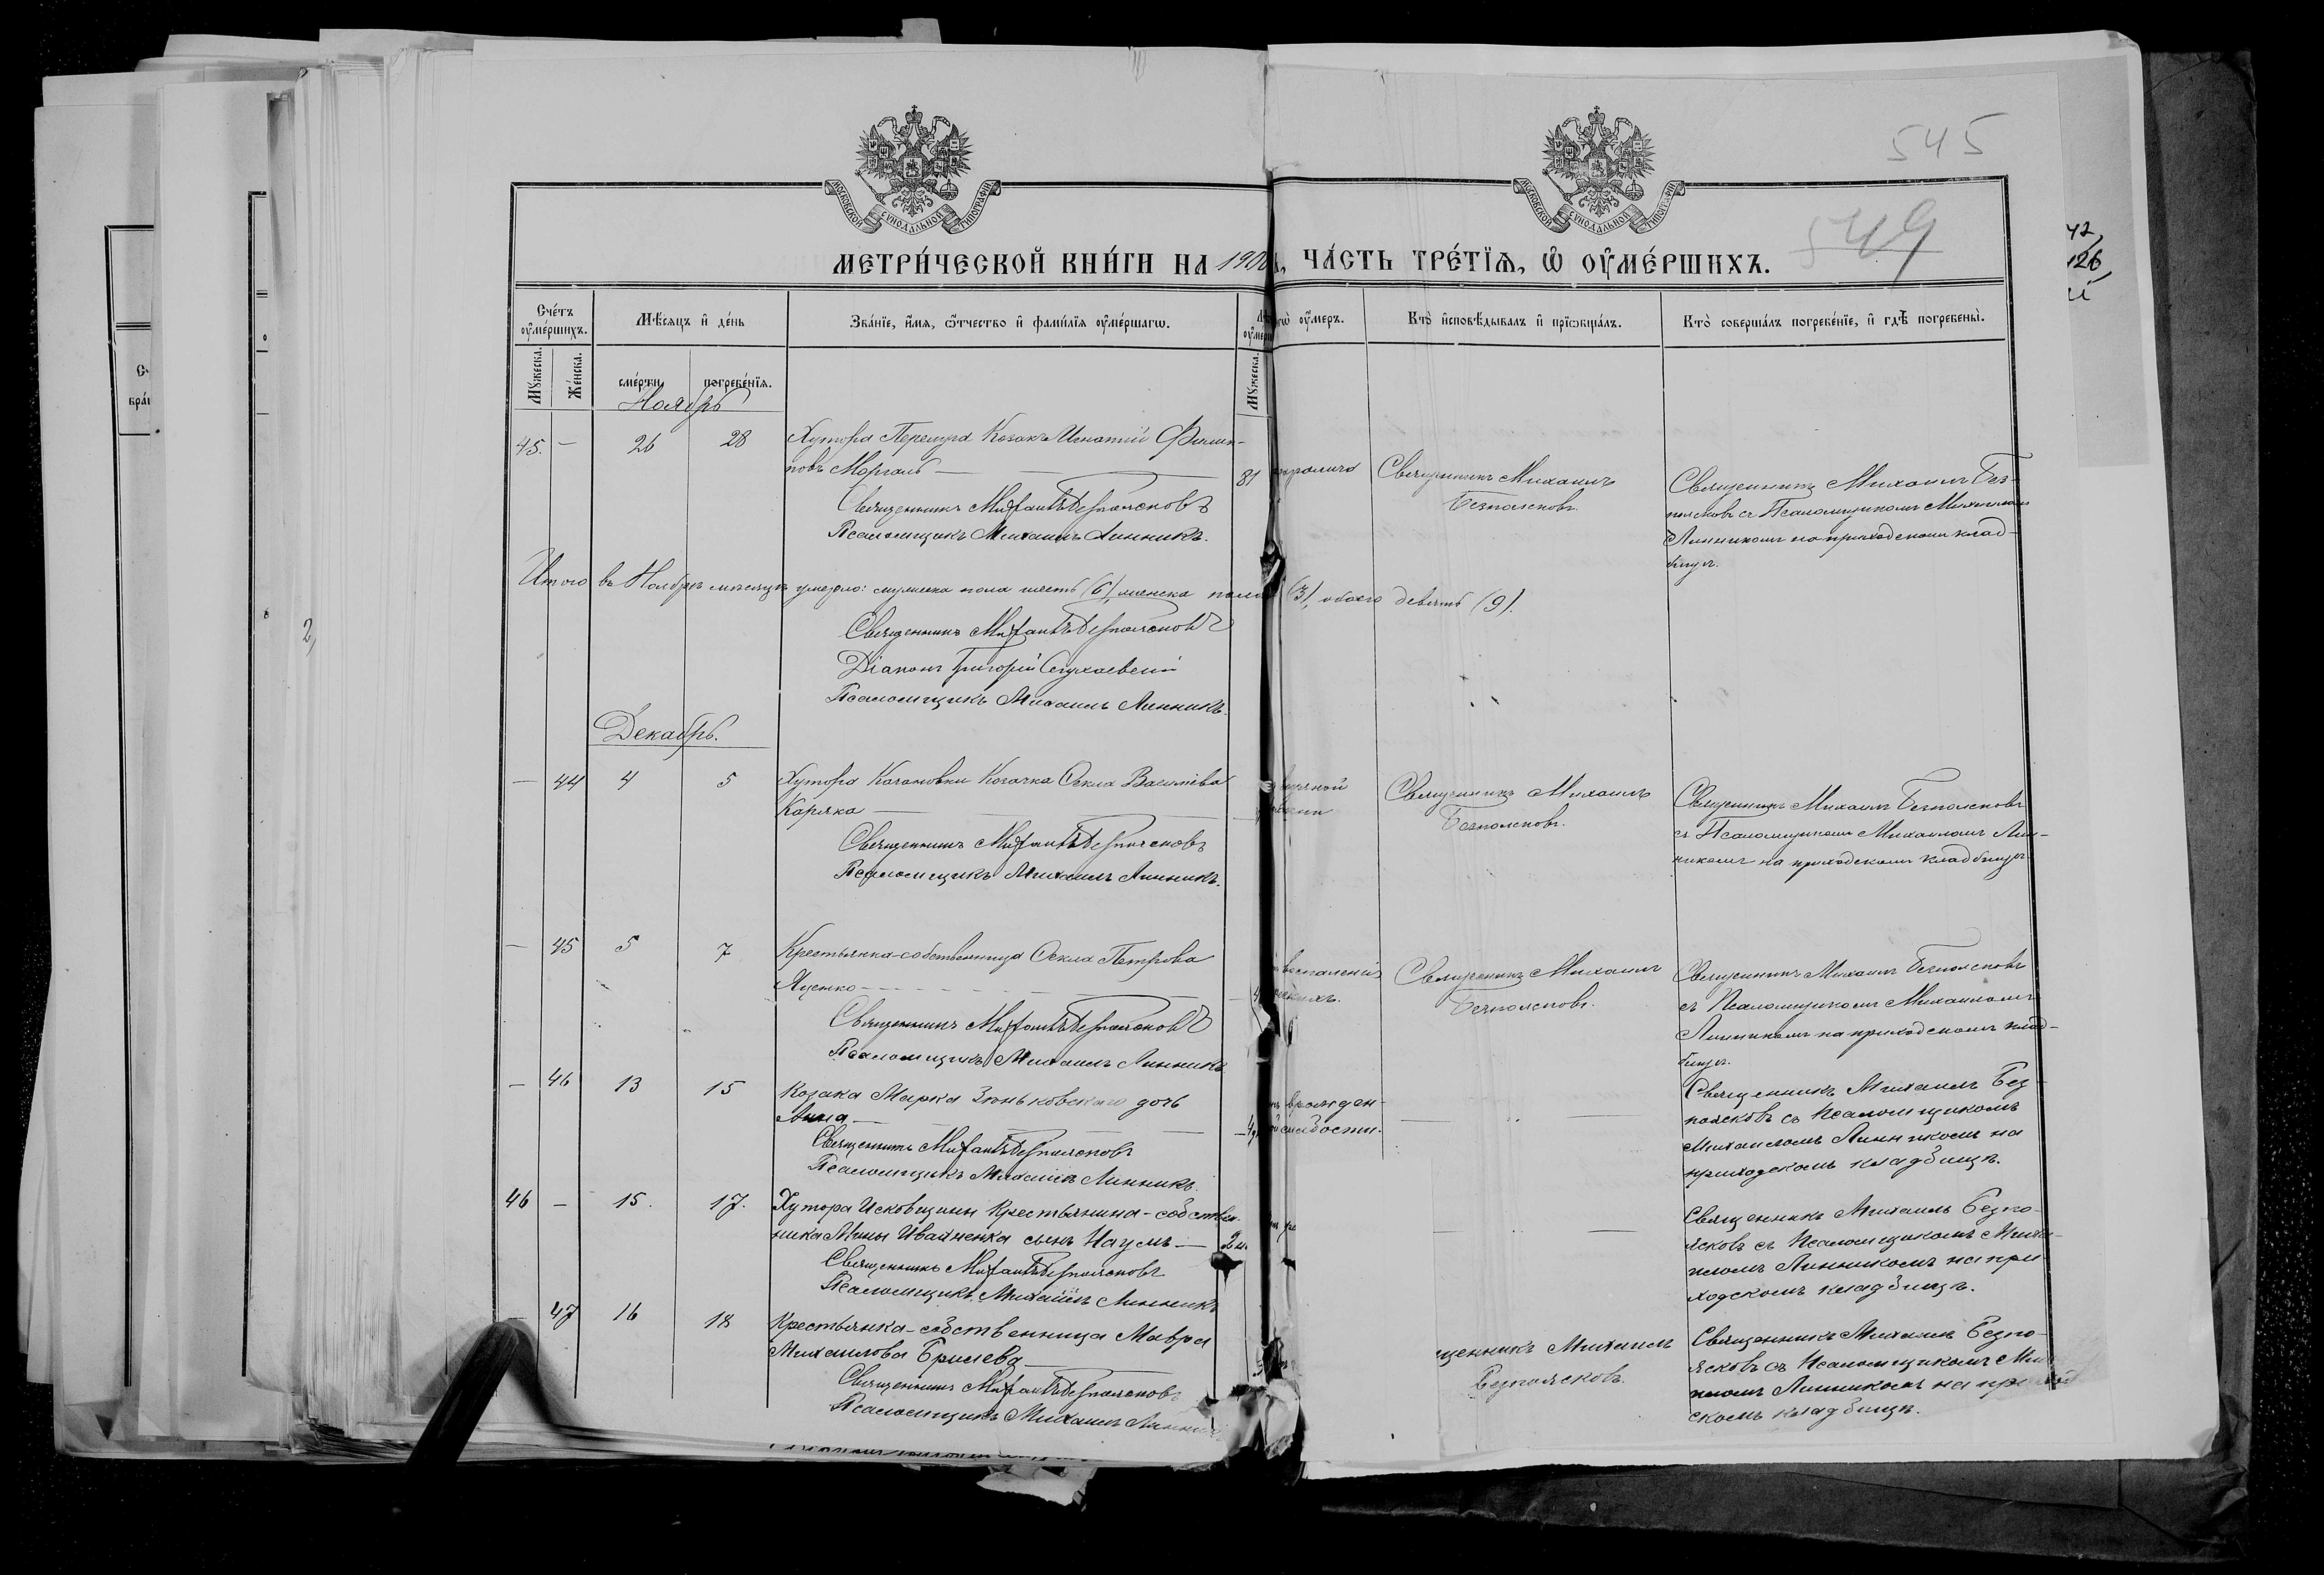 545
549
МОСКОВСКОЙ СѴНОДАЛЬНОЙ ТИПОГРАФІИ
МОСКОВСКОЙ СѴНОДАЛЬНОЙ ТИПОГРАФІИ
МЕТРИ́ЧЕСКОЙ КНИ́ГИ НА 1900
ЧА́СТЬ ТРЕ́ТІѦ, Ѡ҆ ОУ҆МЕ́РШИХЪ.
Сче́тъ оу҆ме́ршихъ.
Мѣ́сяцъ и҆ де́нь
Зва́нїе, и҆́мя, ѻ҆́тчество и҆ фамилїя оу҆ме́ршагѡ.
оу҆́меръ.
Кто̀ и҆сповѣ́дывалъ и҆ прїѡбща́лъ.
Кто̀ соверша́лъ погребе́нїе, и҆ гдѣ̀ погребены̀.
Мꙋ́жеска.
Же́нска.
сме́рти.
погребе́нїѧ.
Мꙋ́жеска.
Ноябрь
45. — 26 28 Хутора Перемура Козакъ Игнатій Филип-
повъ Моргаль — 81
Священникъ Михаилъ Безпоясковъ
Псаломщикъ Михаилъ Линникъ.
паралича
Священникъ Михаилъ
Безпоясковъ.
Священникъ Михаилъ Без-
поясковъ съ Псаломщикомъ Михаиломъ
Линникомъ на приходскомъ клад-
бищѣ.
Итого въ Ноябрѣ мѣсяцѣ умерло: мужеска пола шесть (6), женска пола (3), обоего девять (9).
Священникъ Михаилъ Безпоясковъ
Діаконъ Григорій
Псаломщикъ Михаилъ Линникъ.
Декабрь.
— 44 4 5 Хутора Качановки Козачка Ѳекла Васильева
Каряка —
Священникъ Михаилъ Безпоясковъ
Псаломщикъ Михаилъ Линникъ.
Священникъ Михаилъ
Безпоясковъ.
Священникъ Михаилъ Безпоясковъ
съ Псаломщикомъ Михаиломъ Лин-
никомъ на приходскомъ кладбищѣ.
— 45 5 7 Крестьянка-собственница Ѳекла Петрова
Яценко —
Священникъ Михаилъ Безпоясковъ
Псаломщикъ Михаилъ Линникъ
воспаленія
Священникъ Михаилъ
Безпоясковъ.
Священникъ Михаилъ Безпоясковъ
съ Псаломщикомъ Михаиломъ
Линникомъ на приходскомъ клад-
бищѣ.
— 46 13 15 Козака Марка Зѣньковскаго дочь
Анна —
Священникъ Михаилъ Безпоясковъ
Псаломщикъ Михаилъ Линникъ.
врожден-
слабости.
Священникъ Михаилъ Без-
поясковъ съ Псаломщикомъ
Михаиломъ Линникомъ на
приходскомъ кладбищѣ.
46 — 15. 17. Хутора Исковщины Крестьянина-собствен-
ника Мины Ивахненка сынъ Наумъ —
Священникъ Михаилъ Безпоясковъ
Псаломщикъ Михаилъ Линникъ
Священникъ Михаилъ Безпо-
ясковъ съ Псаломщикомъ Миха-
иломъ Линникомъ на при-
ходскомъ кладбищѣ.
47 16 18 Крестьянка-собственница Мавра
Михаилова Брилева —
Священникъ Михаилъ Безпоясковъ
Псаломщикъ Михаилъ Линникъ
щенникъ Михаилъ
Безпоясковъ.
Священникъ Михаилъ Безпо-
ясковъ съ Псаломщикомъ Миха
иломъ Линникомъ на приход
скомъ кладбищѣ.